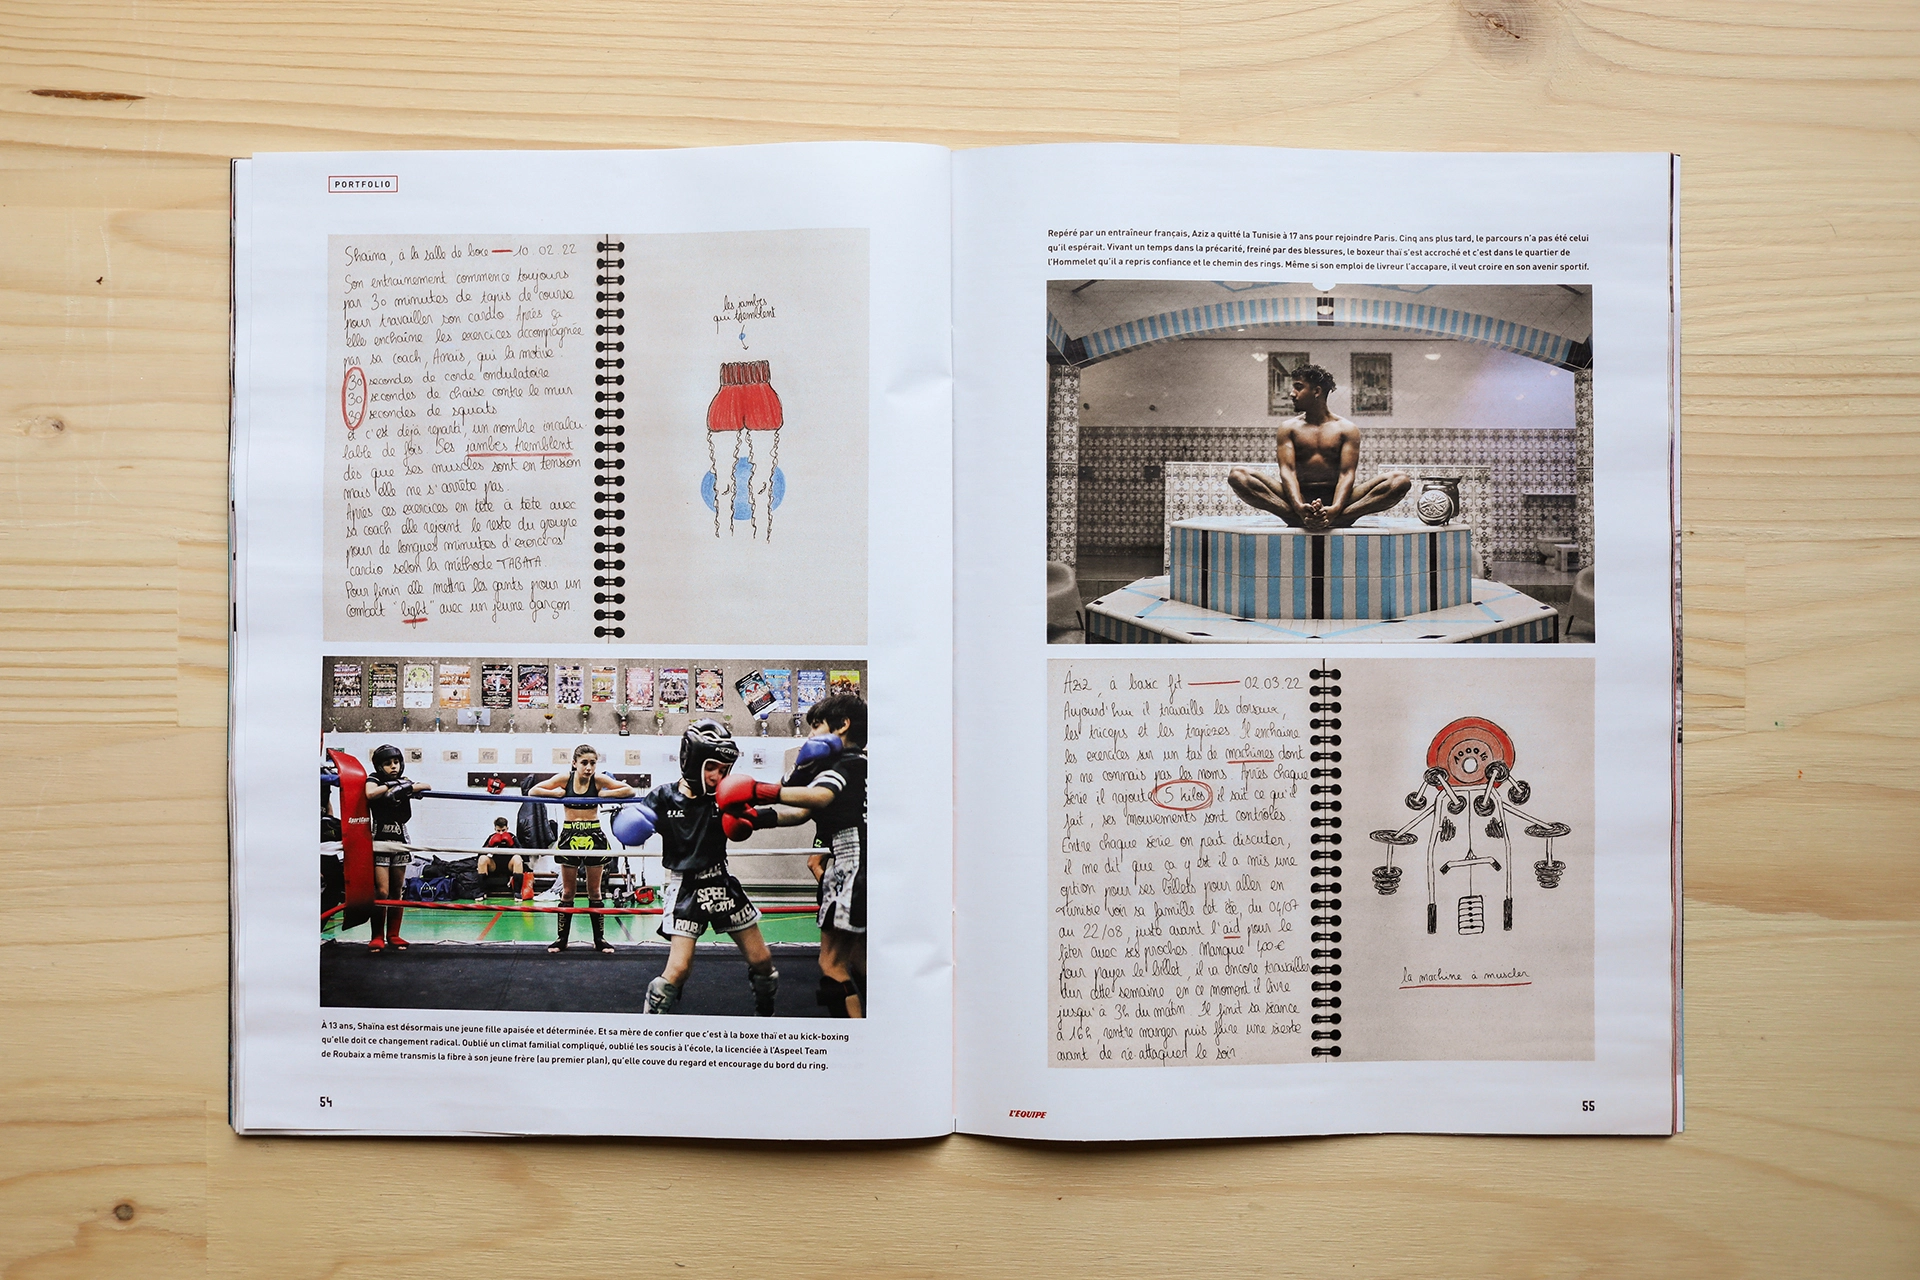 PORTFOLIO
Shaïna, à la salle de boxe — 10.02.22
Son entrainement commence toujours
par 30 minutes de tapis de course
pour travailler son cardio. Après ça
elle enchaîne les exercices accompagnée
par sa coach, Anaïs, qui la motive.
30 secondes de corde ondulatoire
30 secondes de chaise contre le mur
30 secondes de squats
et c'est déjà reparti, un nombre incalcu-
lable de fois. Ses jambes tremblent
dès que ses muscles sont en tension
mais elle ne s'arrête pas.
Après ces exercices en tête à tête avec
sa coach elle rejoint le reste du groupe
pour de longues minutes d'exercices
cardio selon la méthode TABATA.
Pour finir elle mettra les gants pour un
combat "light" avec un jeune garçon.
les jambes
qui tremblent
VENUM
SPEEL
Team
ROUB
À 13 ans, Shaïna est désormais une jeune fille apaisée et déterminée. Et sa mère de confier que c'est à la boxe thaï et au kick-boxing
qu'elle doit ce changement radical. Oublié un climat familial compliqué, oublié les soucis à l'école, la licenciée à l'Aspeel Team
de Roubaix a même transmis la fibre à son jeune frère (au premier plan), qu'elle couve du regard et encourage du bord du ring.
54
Repéré par un entraîneur français, Aziz a quitté la Tunisie à 17 ans pour rejoindre Paris. Cinq ans plus tard, le parcours n'a pas été celui
qu'il espérait. Vivant un temps dans la précarité, freiné par des blessures, le boxeur thaï s'est accroché et c'est dans le quartier de
l'Hommelet qu'il a repris confiance et le chemin des rings. Même si son emploi de livreur l'accapare, il veut croire en son avenir sportif.
Aziz, à basic fit — 02.03.22
Aujourd'hui il travaille les dorsaux,
les triceps et les trapèzes. Il enchaîne
les exercices sur un tas de machines dont
je ne connais pas les noms. Après chaque
série il rajoute 5 kilos, il sait ce qu'il
fait, ses mouvements sont contrôlés.
Entre chaque série on peut discuter,
il me dit que ça y est il a mis une
option pour ses billets pour aller en
Tunisie voir sa famille cet été, du 04/07
au 22/08, juste avant l'aid pour le
fêter avec ses proches. Manque 400€
pour payer le billet, il va encore travailler
dur cette semaine en ce moment il livre
jusqu'à 3h du matin. Il finit sa séance
à 16h, rentre manger puis faire une sieste
avant de ré-attaquer le soir
la machine à muscler
L'ÉQUIPE
55